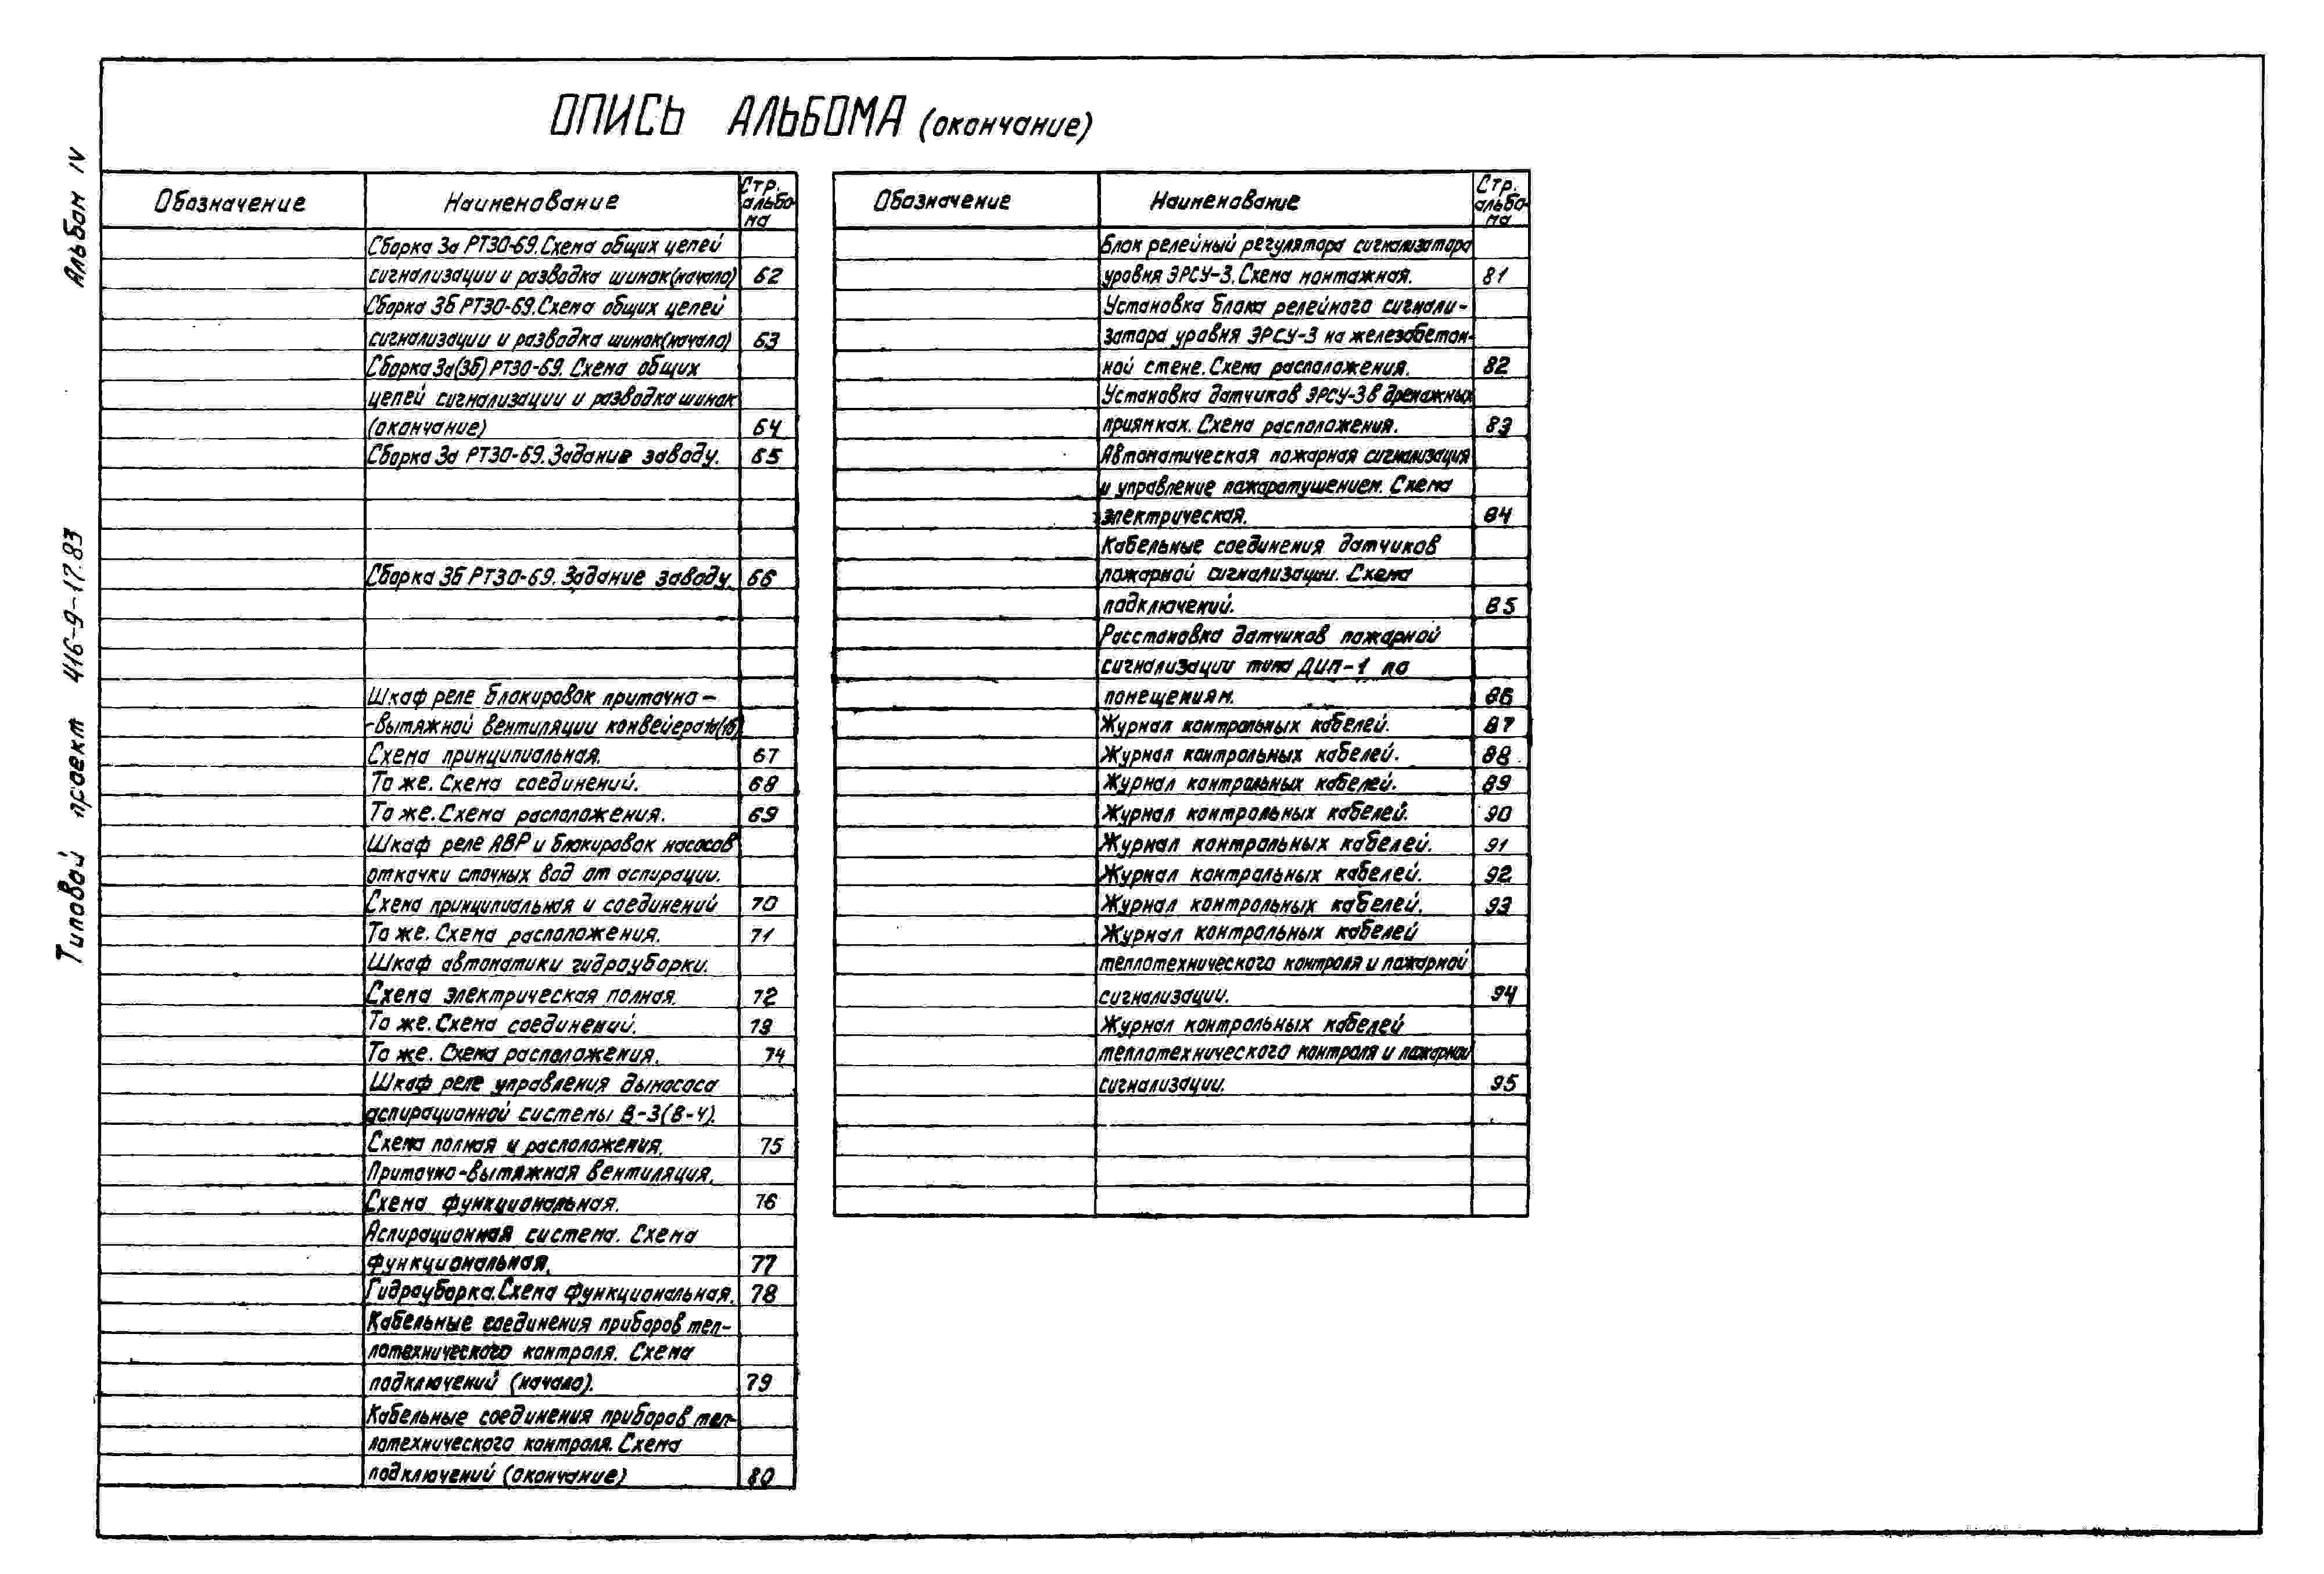 ОПИСЬ АЛЬБОМА (окончание)
Альбом IV
Типовой проект 416-9-17.83
Обозначение Наименование Стр. альбо-ма
Сборка 3а РТ30-69. Схема общих цепей
сигнализации и разводка шинок (начало) 62
Сборка 3б РТ30-69. Схема общих цепей
сигнализации и разводка шинок (начало) 63
Сборка 3а(3б) РТ30-69. Схема общих
цепей сигнализации и разводка шинок
(окончание) 64
Сборка 3а РТ30-69. Задание заводу. 65
Сборка 3б РТ30-69. Задание заводу. 66
Шкаф реле блокировок приточно-
-вытяжной вентиляции конвейера 1а(1б)
Схема принципиальная. 67
То же. Схема соединений. 68
То же. Схема расположения. 69
Шкаф реле АВР и блокировок насосов
откачки сточных вод от аспирации.
Схема принципиальная и соединений 70
То же. Схема расположения. 71
Шкаф автоматики гидроуборки.
Схема электрическая полная. 72
То же. Схема соединений. 73
То же. Схема расположения. 74
Шкаф реле управления дымососа
аспирационной системы В-3(В-4).
Схема полная и расположения. 75
Приточно-вытяжная вентиляция.
Схема функциональная. 76
Аспирационная система. Схема
функциональная. 77
Гидроуборка. Схема функциональная. 78
Кабельные соединения приборов теп-
лотехнического контроля. Схема
подключений (начало). 79
Кабельные соединения приборов теп-
лотехнического контроля. Схема
подключений (окончание) 80
Обозначение Наименование Стр. альбо-ма
Блок релейный регулятора сигнализатора
уровня ЭРСУ-3. Схема монтажная. 81
Установка блока релейного сигнали-
затора уровня ЭРСУ-3 на железобетон-
ной стене. Схема расположения. 82
Установка датчиков ЭРСУ-3 в дренажных
приямках. Схема расположения. 83
Автоматическая пожарная сигнализация
и управление пожаротушением. Схема
электрическая. 84
Кабельные соединения датчиков
пожарной сигнализации. Схема
подключений. 85
Расстановка датчиков пожарной
сигнализации типа ДИП-1 по
помещениям. 86
Журнал контрольных кабелей. 87
Журнал контрольных кабелей. 88
Журнал контрольных кабелей. 89
Журнал контрольных кабелей. 90
Журнал контрольных кабелей. 91
Журнал контрольных кабелей. 92
Журнал контрольных кабелей. 93
Журнал контрольных кабелей
теплотехнического контроля и пожарной
сигнализации. 94
Журнал контрольных кабелей
теплотехнического контроля и пожарной
сигнализации. 95